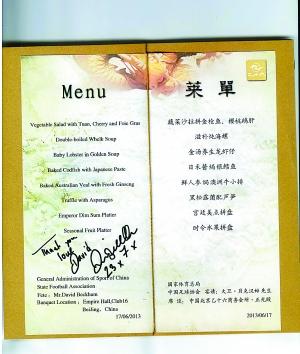 Menu
Vegetable Salad with Tuna, Cherry and Foie Gras
Double-boiled Whelk Soup
Baby Lobster in Golden Soup
Baked Codfish with Japanese Paste
Baked Australian Veal with Fresh Ginseng
Truffle with Asparagus
Emperor Dim Sum Platter
Seasonal Fruit Platter
Thank you
love
David
23 x 7 x
General Administration of Sport of China
State Football Association
Fete: Mr.David Beckham
Banquet Location: Empire Hall,Club16
Beijing, China
17/06/2013
菜單
蔬菜沙拉拼金枪鱼，樱桃鹅肝
滋补炖海螺
金汤养生龙虾仔
日本酱焗银鳕鱼
鲜人参焗澳洲牛小排
黑松露菌配芦笋
宫廷美点拼盘
时令水果拼盘
国家体育总局
中国足球协会 宴请：大卫·贝克汉姆 先生
席 设：中国北京乙十六商务会所·
2013/06/17